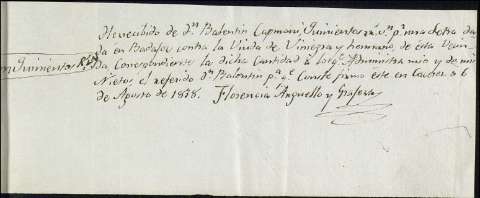 He recibido de Dn. Balentin Capmani Quinientos rs. vn. pr. una letra da
da en Badajoz contra la Viuda de Viniegra y hermano de esta Vecin
son Quinientos Rs. Vn.
da Correspondiente la dicha Cantidad a lo q. Administra mio y de mis
Nietos el referido Dn. Balentin pa. qe. Conste firmo este en Caceres a 6
de Agosto de 1818. Florencia Arguello y Grafera